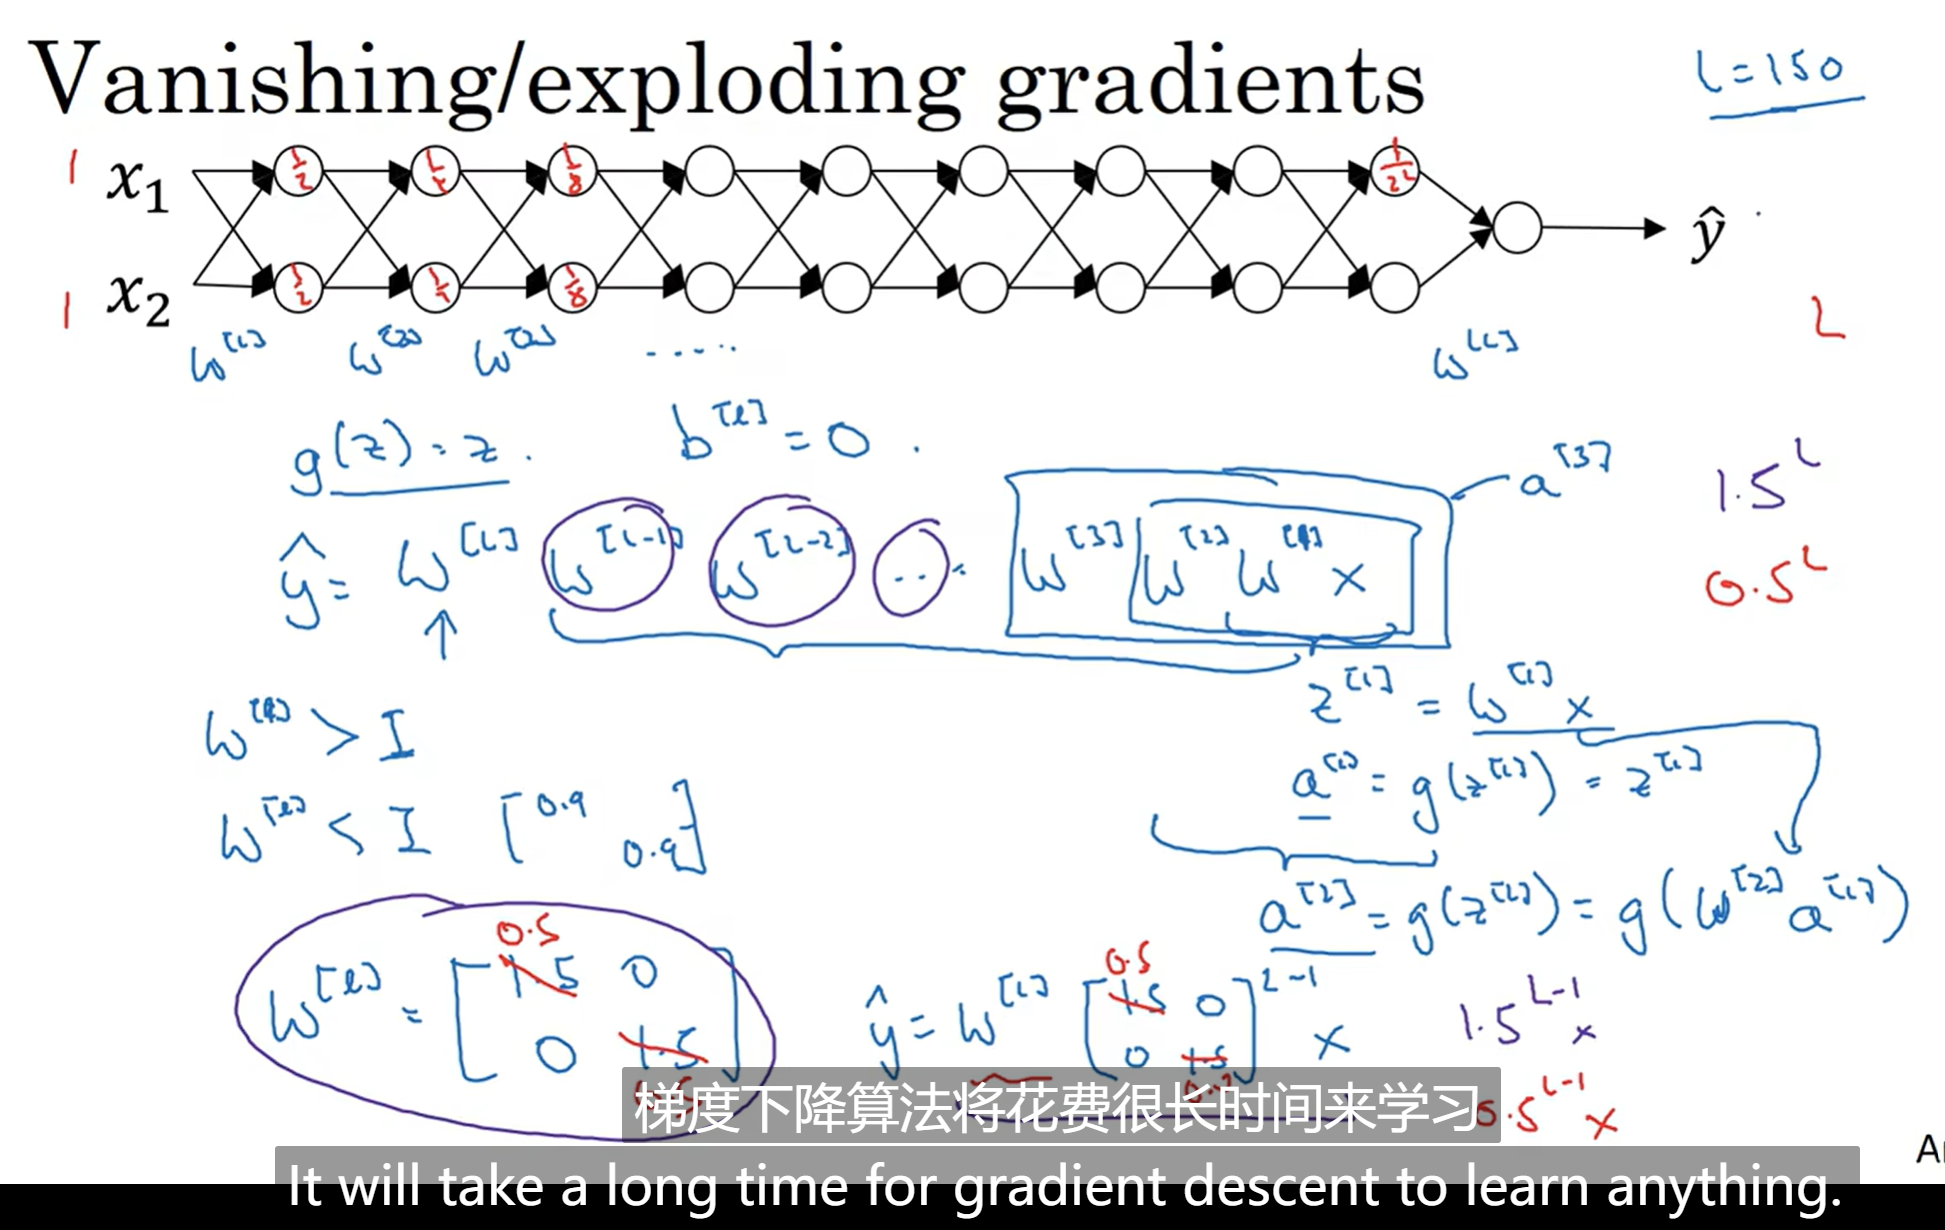 Vanishing/exploding gradients
L=150
1 x₁ 1/2 1/4 1/8 1/2^L
ŷ
1 x₂ 1/2 1/4 1/8
L
W^[1] W^[2] W^[3] ..... W^[L]
g(z) = z . b^[l] = 0 .
a^[3]
1.5^L
ŷ = W^[L] W^[L-1] W^[L-2] ... W^[3] W^[2] W^[1] x
0.5^L
z^[1] = W^[1] x
W^[l] > I
a^[1] = g(z^[1]) = z^[1]
W^[l] < I [0.9 0.9]
a^[2] = g(z^[2]) = g(W^[2] a^[1])
0.5 0.5
W^[l] = [1.5 0
0 1.5]
ŷ = W^[L] [1.5 0
0 1.5]^L-1 x
1.5^L-1 x
0.5^L-1 x
梯度下降算法将花费很长时间来学习
It will take a long time for gradient descent to learn anything.